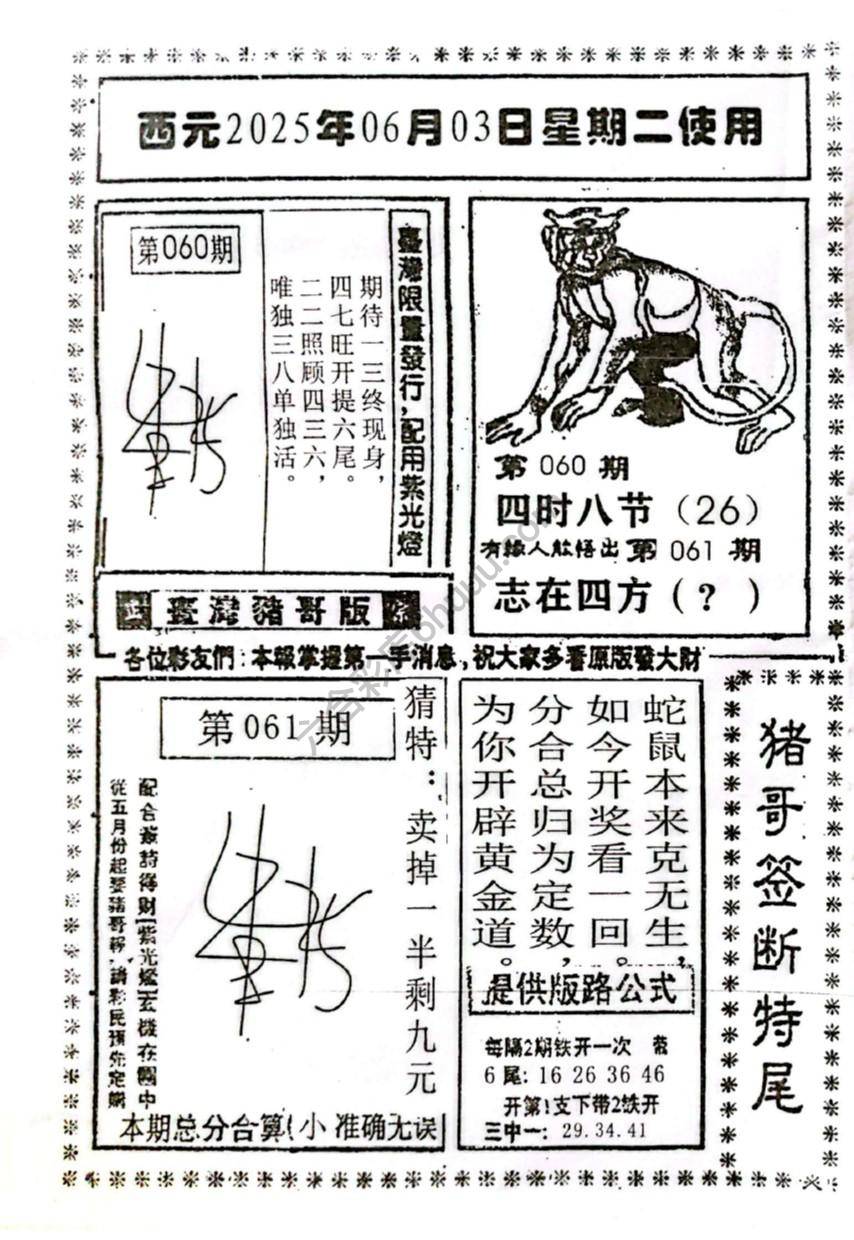 西元2025年06月03日星期二使用
第060期
期待一三终现身，
四七旺开提六尾。
二二照顾四三六，
唯独三八单独活。
臺灣限量發行，配用紫光燈
臺灣豬哥版
第 060 期
四时八节（26）
有緣人能悟出 第 061 期
志在四方（？）
各位彩友們：本報掌握第一手消息，祝大家多看原版發大財
第 061 期
猜特：卖掉一半剩九元
配合叢詩得財【紫光燈】玄機在圖中
從五月份起要豬哥報，請彩民預先定購
本期总分合算（小 准确无误
蛇鼠本来克无生，
如今开奖看一回。
分合总归为定数，
为你开辟黄金道。
提供版路公式
每隔2期铁开一次
6 尾: 16 26 36 46
开第1支下带2铁开
三中一: 29.34.41
猪哥签断特尾
六合彩库6huuu.com